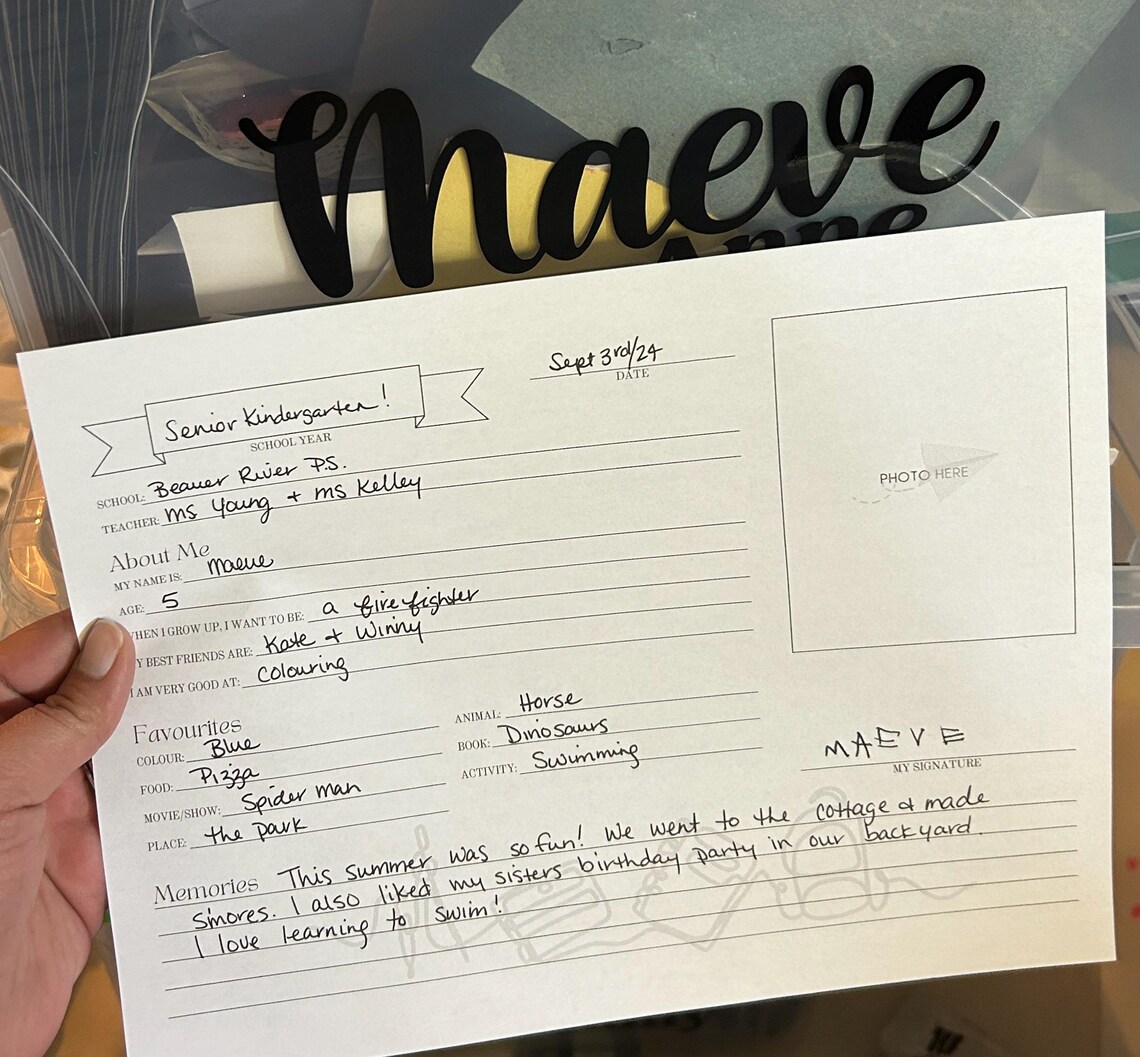 Maeve
Anne
Senior Kindergarten!
SCHOOL YEAR
Sept 3rd/24
DATE
SCHOOL: Beaver River P.S.
TEACHER: Ms Young + Ms Kelley
About Me
MY NAME IS: Maeve
AGE: 5
WHEN I GROW UP, I WANT TO BE: a firefighter
MY BEST FRIENDS ARE: Kate + Winny
I AM VERY GOOD AT: Colouring
PHOTO HERE
Favourites
COLOUR: Blue
FOOD: Pizza
MOVIE/SHOW: Spider man
PLACE: the park
ANIMAL: Horse
BOOK: Dinosaurs
ACTIVITY: Swimming
MAEVE
MY SIGNATURE
Memories This summer was so fun! We went to the cottage & made
s'mores. I also liked my sisters birthday party in our backyard.
I love learning to swim!